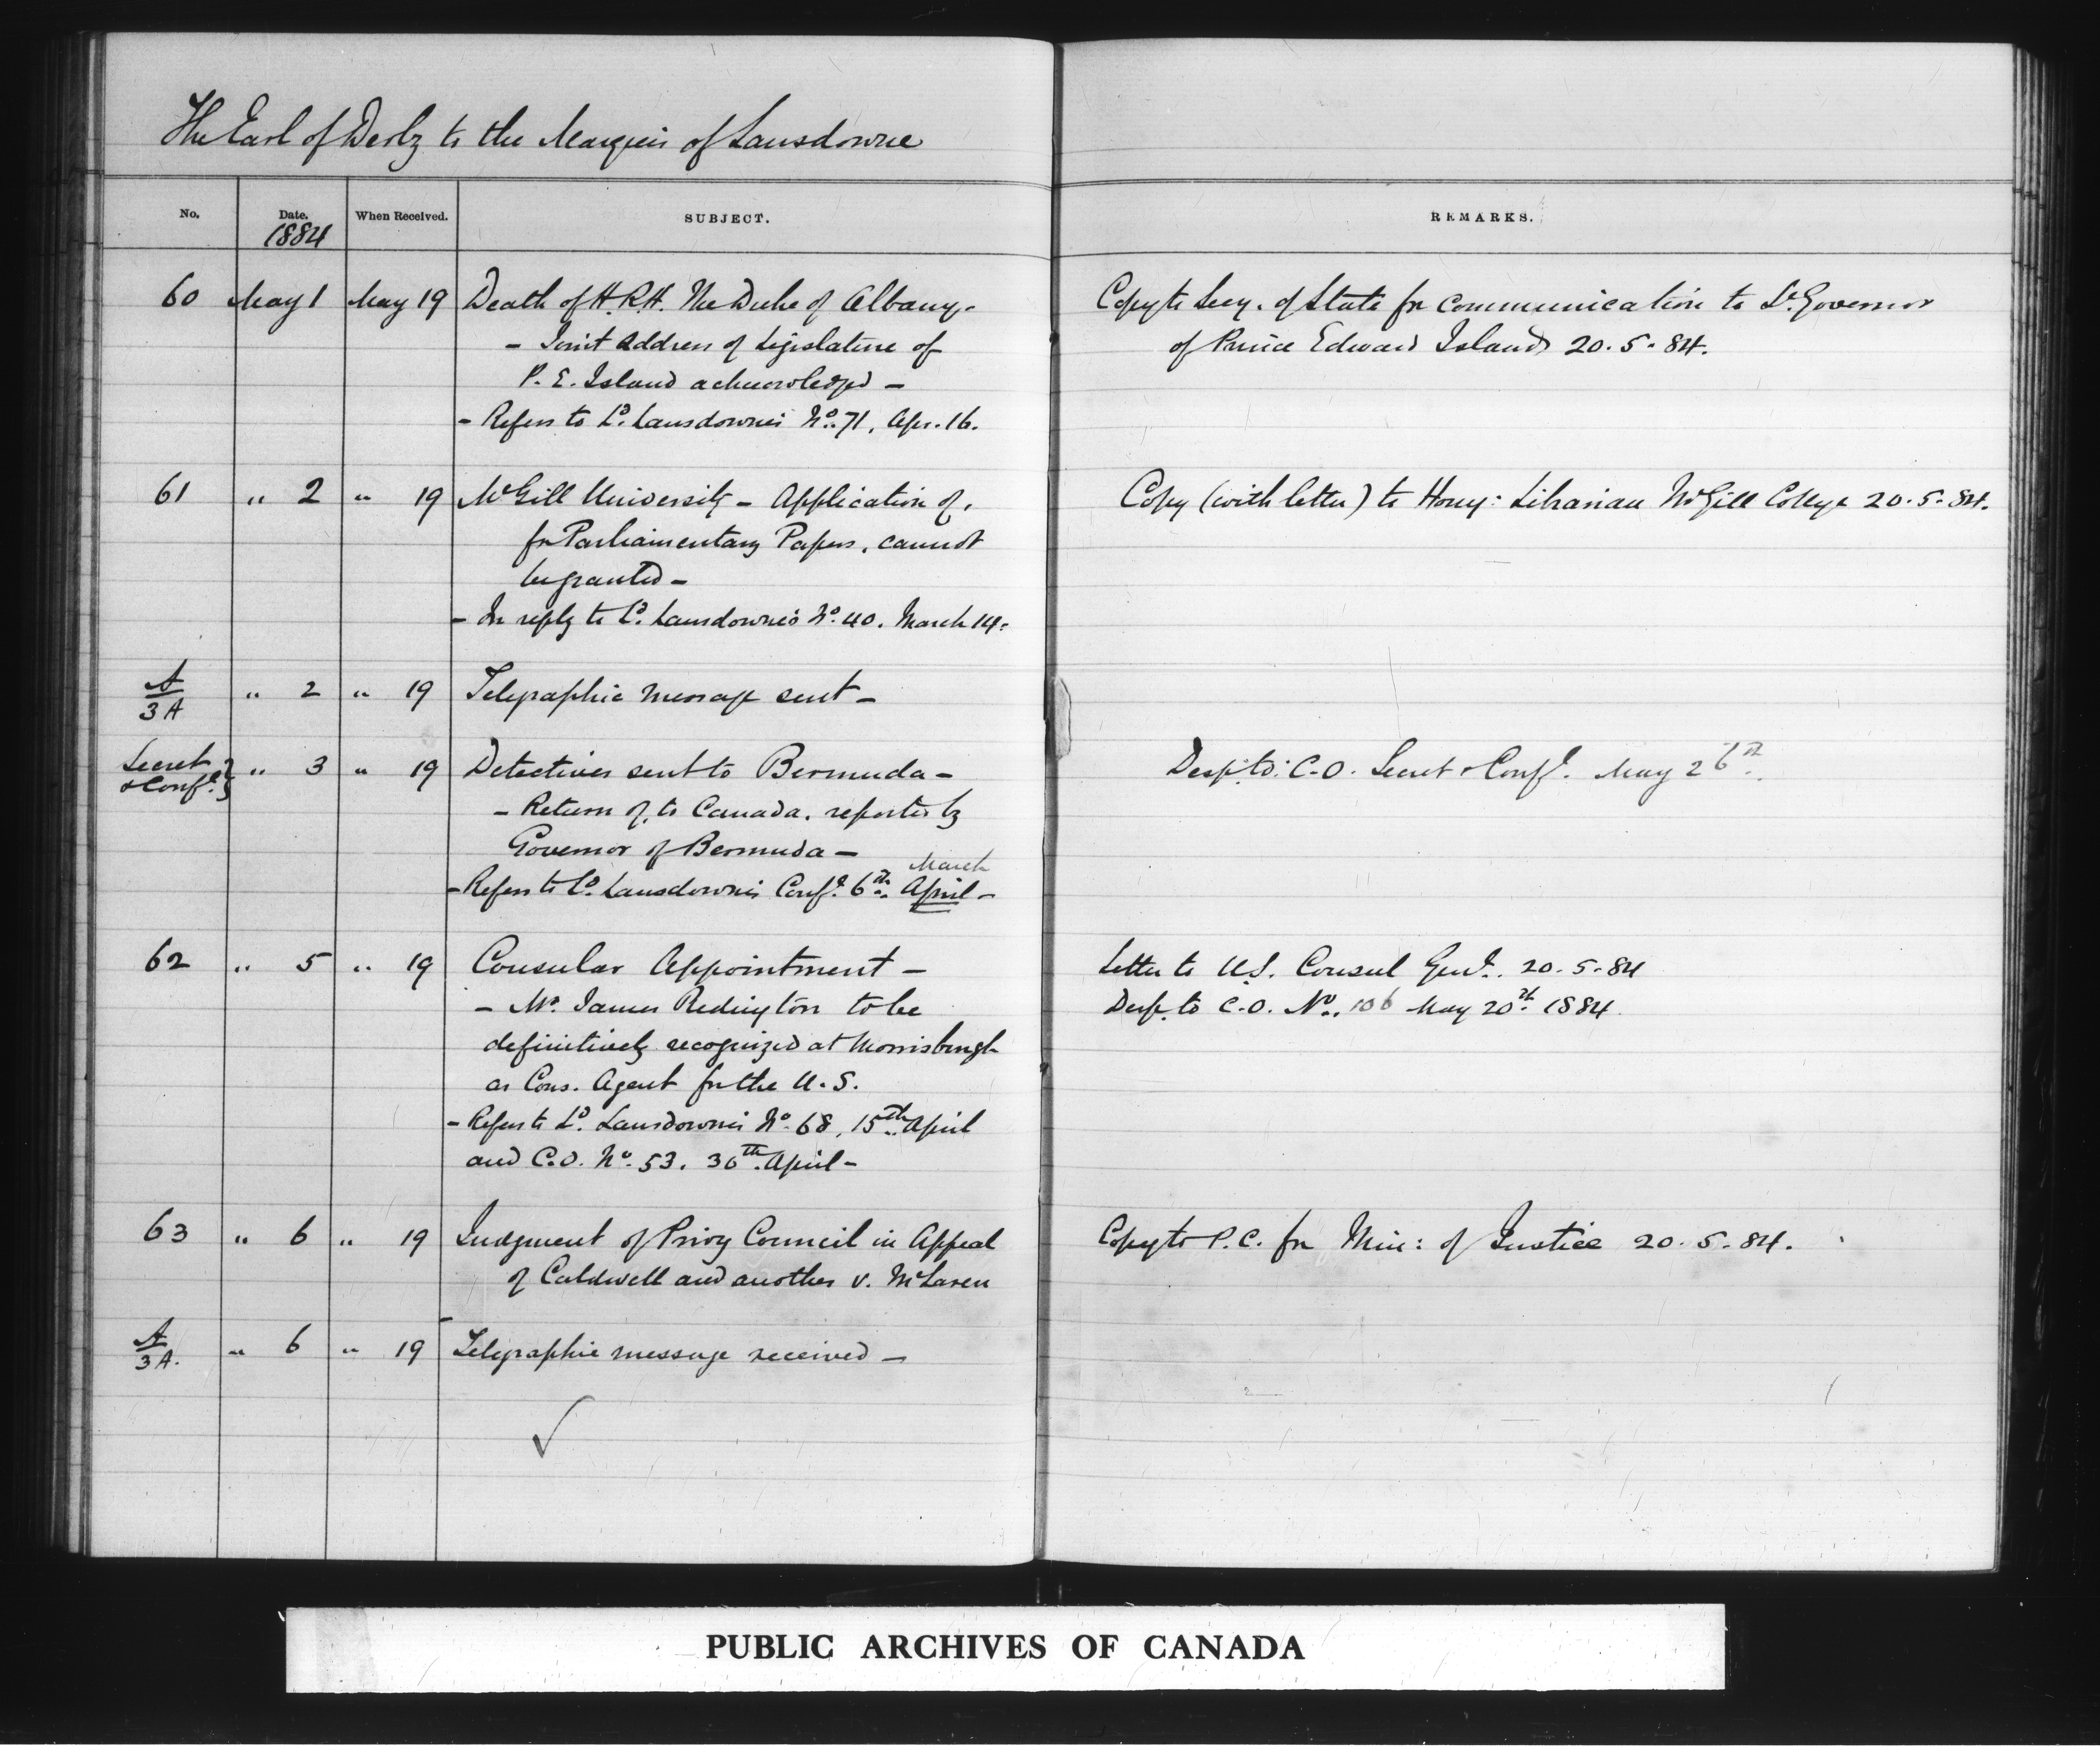 The Earl of Derby to the Marquis of Lansdowne
No. Date. When Received. SUBJECT. REMARKS.
1884
60 May 1 May 19 Death of H.R.H. The Duke of Albany.
- Joint Address of Legislature of
P. E. Island acknowledged -
- Refers to Ld. Lansdowne's No. 71, Apr. 16.
Copy to Secy. of State for communication to Lt. Governor
of Prince Edward Island 20.5.84.
61 " 2 " 19 McGill University - Application of,
for Parliamentary Papers, cannot
be granted -
- In reply to Ld. Lansdowne's No. 40. March 14.
Copy (with letter) to Hony: Librarian McGill College 20.5.84.
A/3A " 2 " 19 Telegraphic message sent -
Secret & Confl. } " 3 " 19 Detectives sent to Bermuda -
- Return of, to Canada, reported by
Governor of Bermuda -
March
- Refers to Ld. Lansdowne's Confl. 6th April -
Desp. to C.O. Secret & Confl. May 26th
62 " 5 " 19 Consular Appointment -
- Mr. James Redington to be
definitively recognized at Morrisburgh
as Cons. Agent for the U.S.
- Refers to Ld. Lansdowne's No. 68, 15th April
and C.O. No. 53. 30th April -
Letter to U.S. Consul Genl. 20.5.84
Desp. to C.O. No. 106 May 20th 1884
63 " 6 " 19 Judgment of Privy Council in Appeal
of Caldwell and another v. McLaren
Copy to P.C. for Min: of Justice 20.5.84.
A/3A. " 6 " 19 Telegraphic message received -
PUBLIC ARCHIVES OF CANADA